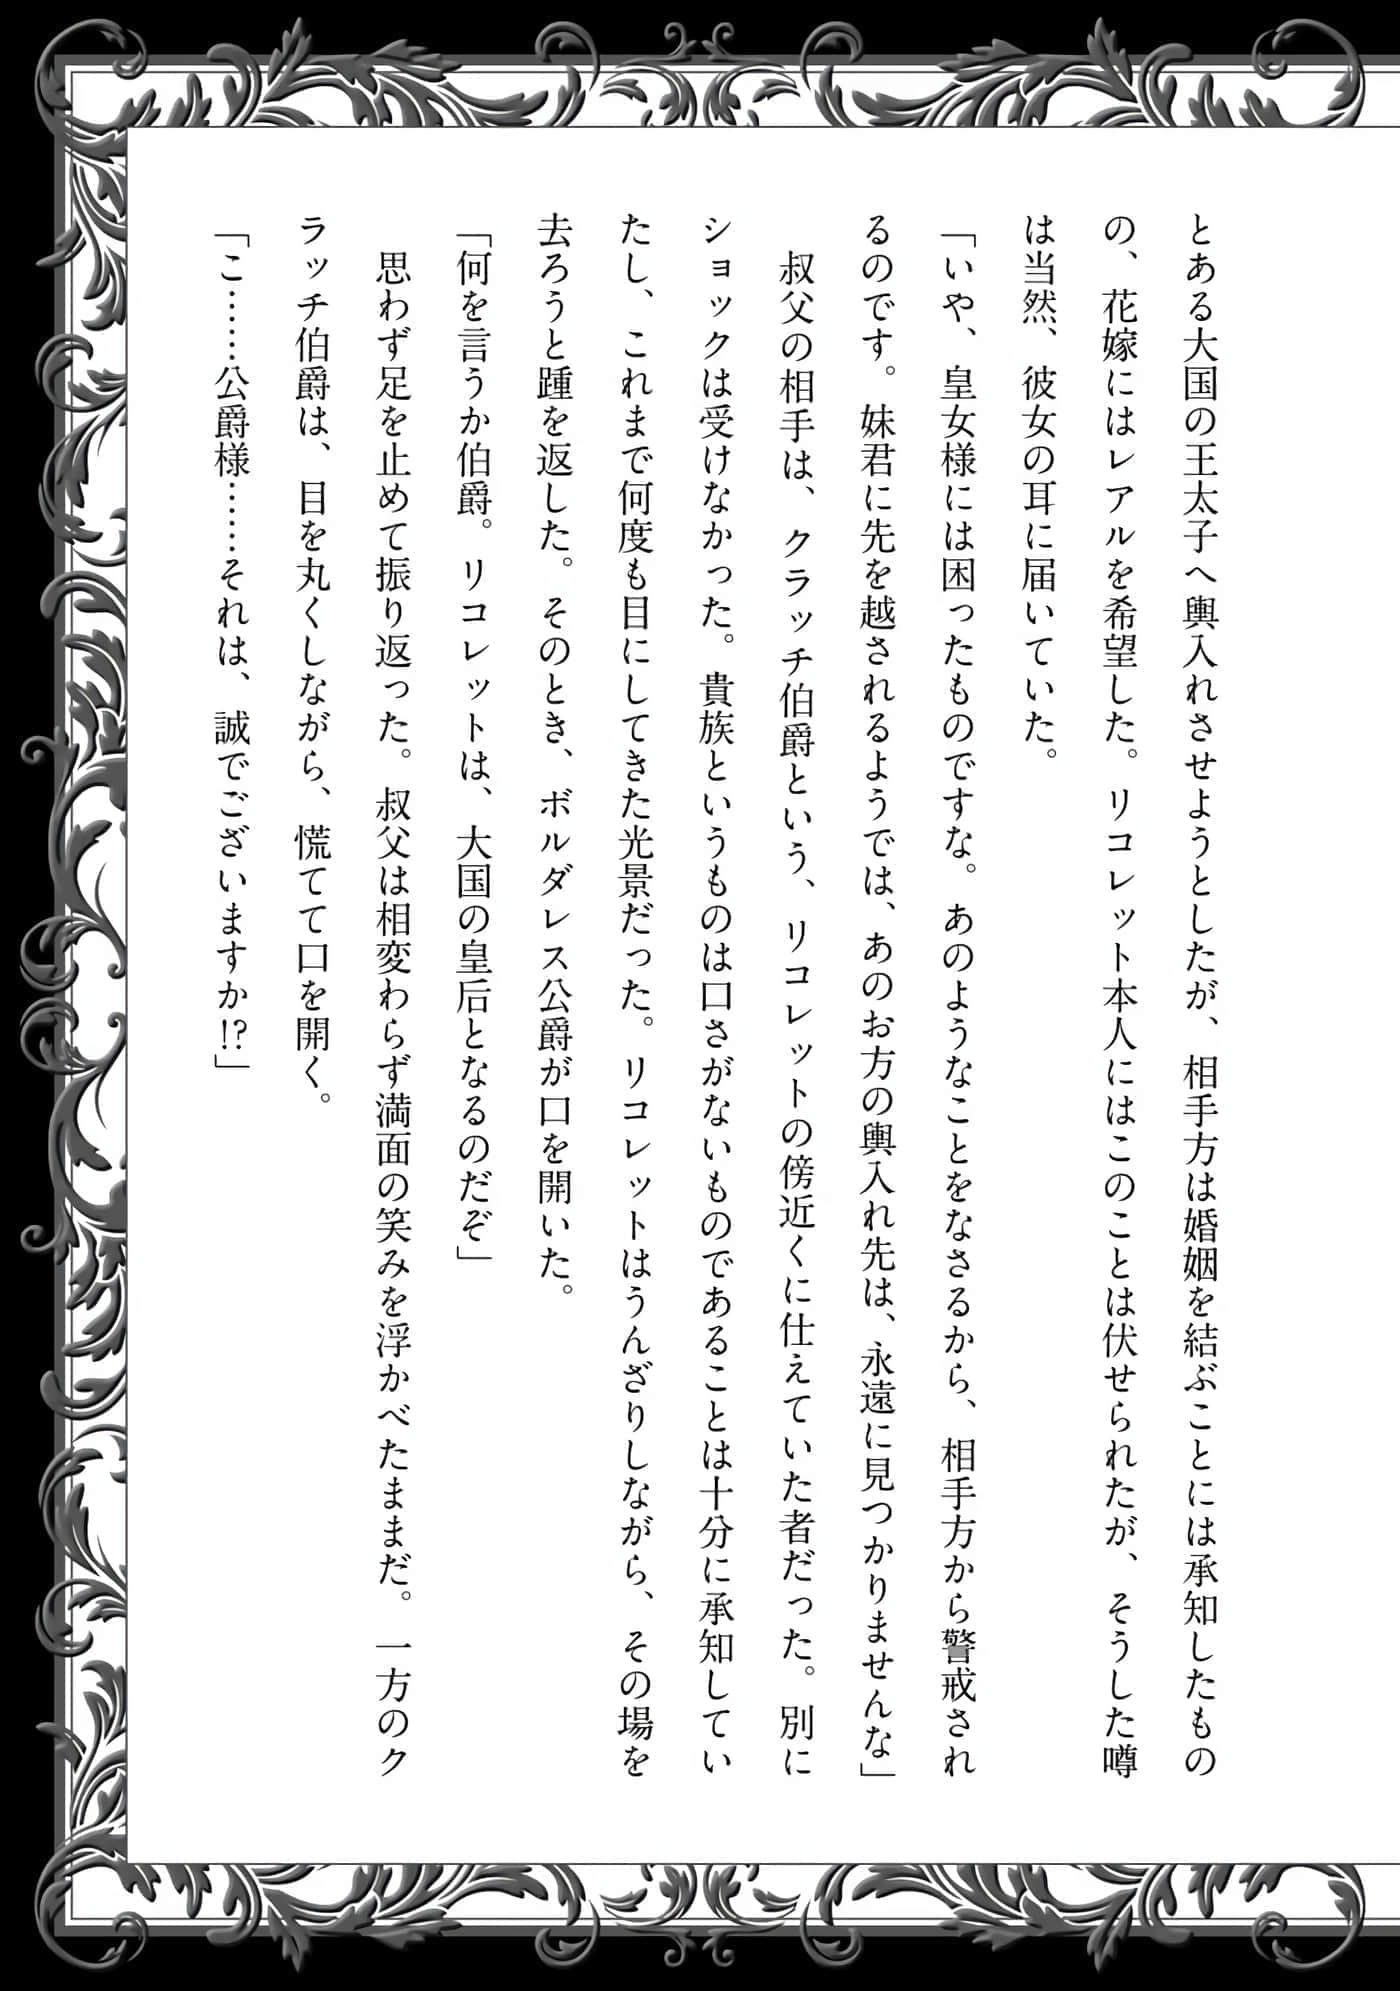 とある大国の王太子へ輿入れさせようとしたが、相手方は婚姻を結ぶことには承知したもの
の、花嫁にはレアルを希望した。リコレット本人にはこのことは伏せられたが、そうした噂
は当然、彼女の耳に届いていた。
「いや、皇女様には困ったものですな。あのようなことをなさるから、相手方から警戒され
るのです。妹君に先を越されるようでは、あのお方の輿入れ先は、永遠に見つかりませんな」
叔父の相手は、クラッチ伯爵という、リコレットの傍近くに仕えていた者だった。別に
ショックは受けなかった。貴族というものは口さがないものであることは十分に承知してい
たし、これまで何度も目にしてきた光景だった。リコレットはうんざりしながら、その場を
去ろうと踵を返した。そのとき、ボルダレス公爵が口を開いた。
「何を言うか伯爵。リコレットは、大国の皇后となるのだぞ」
思わず足を止めて振り返った。叔父は相変わらず満面の笑みを浮かべたままだ。一方のク
ラッチ伯爵は、目を丸くしながら、慌てて口を開く。
「こ……公爵様……それは、誠でございますか!?」